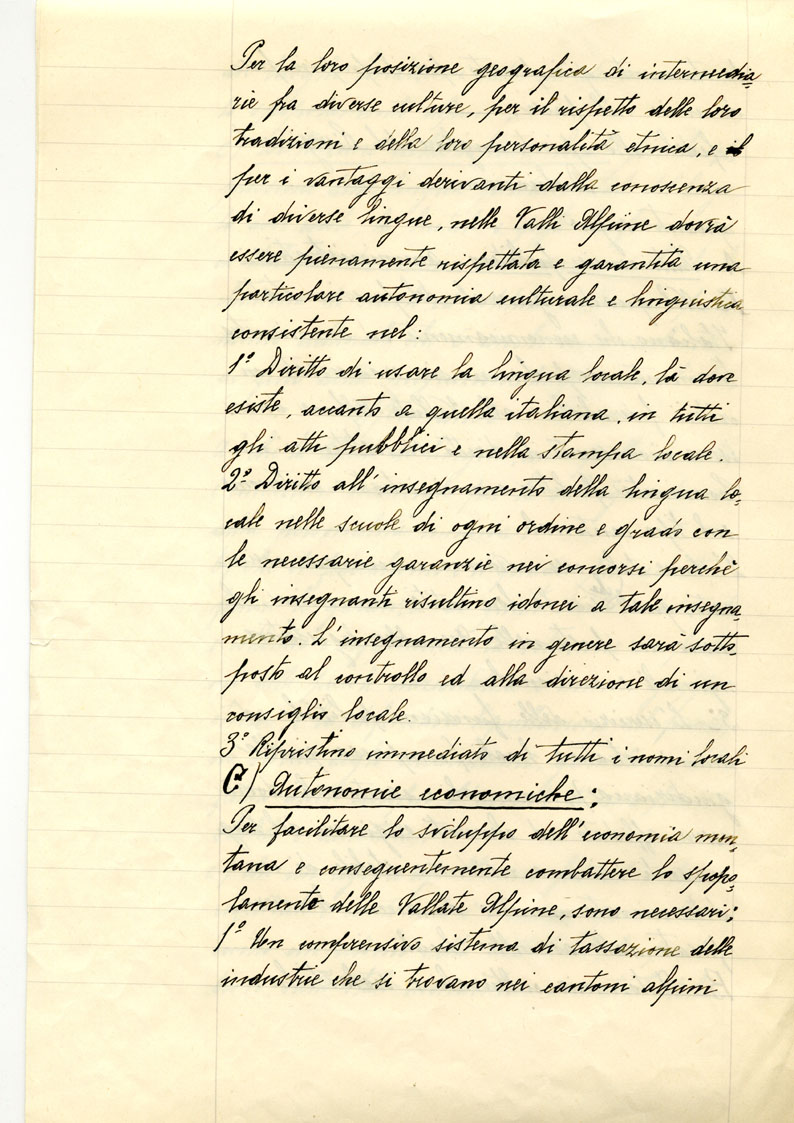 Per la loro posizione geografica di intermedia=
rie fra diverse culture, per il rispetto delle loro
tradizioni e della loro personalità etnica, e il
per i vantaggi derivanti dalla conoscenza
di diverse lingue, nelle Valli Alpine dovrà
essere pienamente rispettata e garantita una
particolare autonomia culturale e linguistica
consistente nel:
1° Diritto di usare la lingua locale, là dove
esiste, accanto a quella italiana, in tutti
gli atti pubblici e nella stampa locale.
2° Diritto all'insegnamento della lingua lo=
cale nelle scuole di ogni ordine e grado con
le necessarie garanzie nei concorsi perchè
gli insegnanti risultino idonei a tale insegna=
mento. L'insegnamento in genere sarà sotto=
posto al controllo ed alla direzione di un
consiglio locale.
3° Ripristino immediato di tutti i nomi locali
C) Autonomie economiche:
Per facilitare lo sviluppo dell'economia mon=
tana e conseguentemente combattere lo spopo=
lamento delle Vallate Alpine, sono necessari:
1° Un comprensivo sistema di tassazione delle
industrie che si trovano nei cantoni alpini